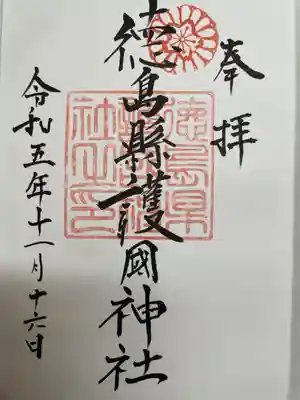 奉拝
徳島縣護國神社
徳島県護國神社之印
令和五年十一月十六日